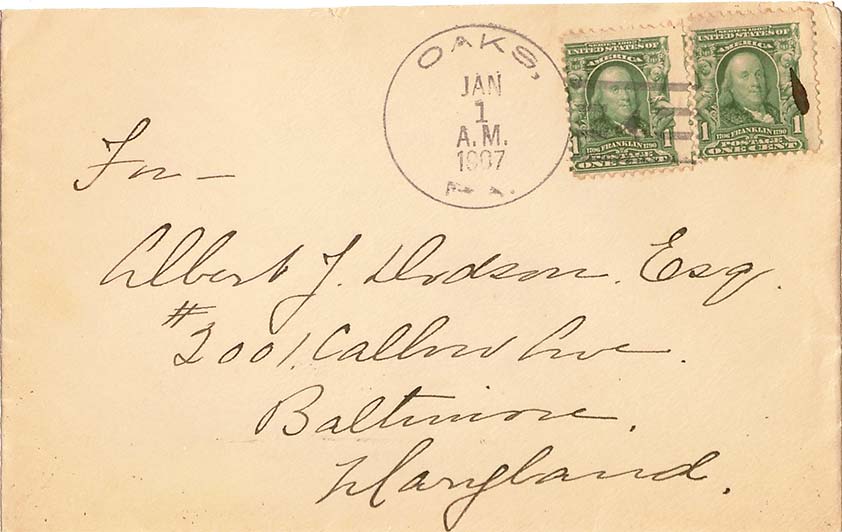 OAKS,
JAN
1
A.M.
1907
PA.
SERIES 1902
UNITED STATES OF
AMERICA
1706 FRANKLIN 1790
1 POSTAGE 1
ONE CENT
SERIES 1902
UNITED STATES OF
AMERICA
1706 FRANKLIN 1790
1 POSTAGE 1
ONE CENT
For —
Albert J. Dodson, Esq.
#2001, Callow Ave.
Baltimore,
Maryland.